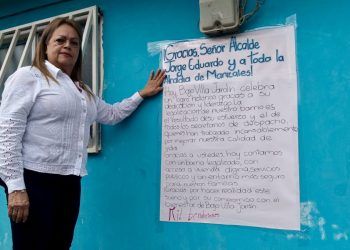 ¡Gracias, Señor Alcalde
Jorge Eduardo y a toda la
Alcaldía de Manizales!
Hoy Bajo Villa Jardín celebra
un logro histórico gracias a su
dedicación y liderazgo. La
legalización de nuestro barrio es
el resultado del esfuerzo y el de
todos los secretarios de despacho,
quienes han trabajado incansablemente
por mejorar nuestra calidad de
vida.
Gracias a ustedes, hoy contamos
con un barrio legalizado, con
acceso a vivienda digna, servicios
públicos y un entorno más seguro
para nuestras familias.
¡Gracias por hacer realidad este
sueño y por su compromiso con el
bienestar de Bajo Villa Jardín
Mil